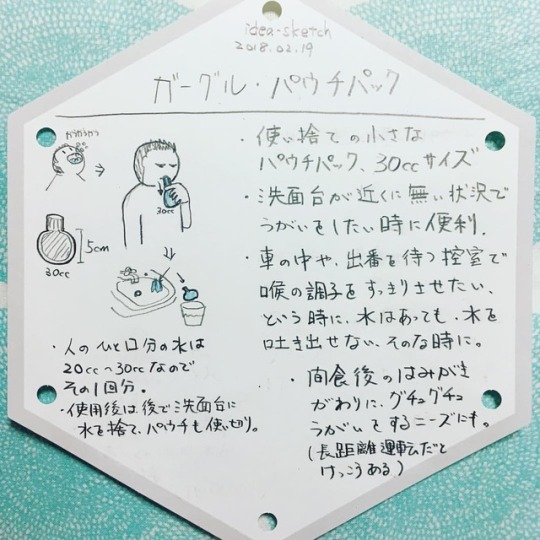 idea-sketch
2018.02.19
ガーグル・パウチパック
ガラガラ
30cc
5cm
30cc
・人のひと口分の水は
20cc〜30ccなので
その1回分。
・使用後は後で洗面台に
水を捨て、パウチも使い切り。
・使い捨ての小さな
パウチパック、30ccサイズ
・洗面台が近くに無い状況で
うがいをしたい時に便利.
・車の中や、出番を待つ控室で
喉の調子をすっきりさせたい、
という時に、水はあっても、水を
吐き出せない、そんな時に。
・間食後のはみがき
がわりに、グチュグチュ
うがいをするニーズにも。
(長距離運転だと
けっこうある)